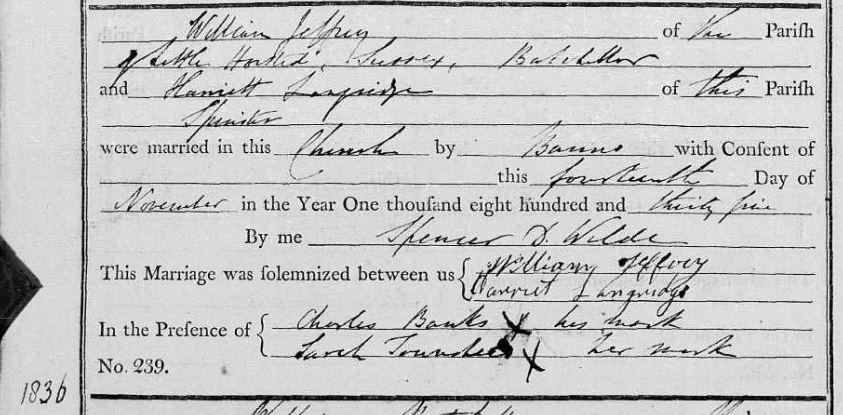 William Jeffrey of the Parish
of Little Horsted, Sussex, Batchellor
and Harriett Langridge of this Parish
Spinster
were married in this Church by Banns with Consent of
this fourteenth Day of
November in the Year One thousand eight hundred and thirty five
By me Spencer D. Wilde
This Marriage was solemnized between us { William Jeffery
Harriet Langridge
In the Presence of { Charles Banks X his mark
Sarah X her mark
No. 239.
1836